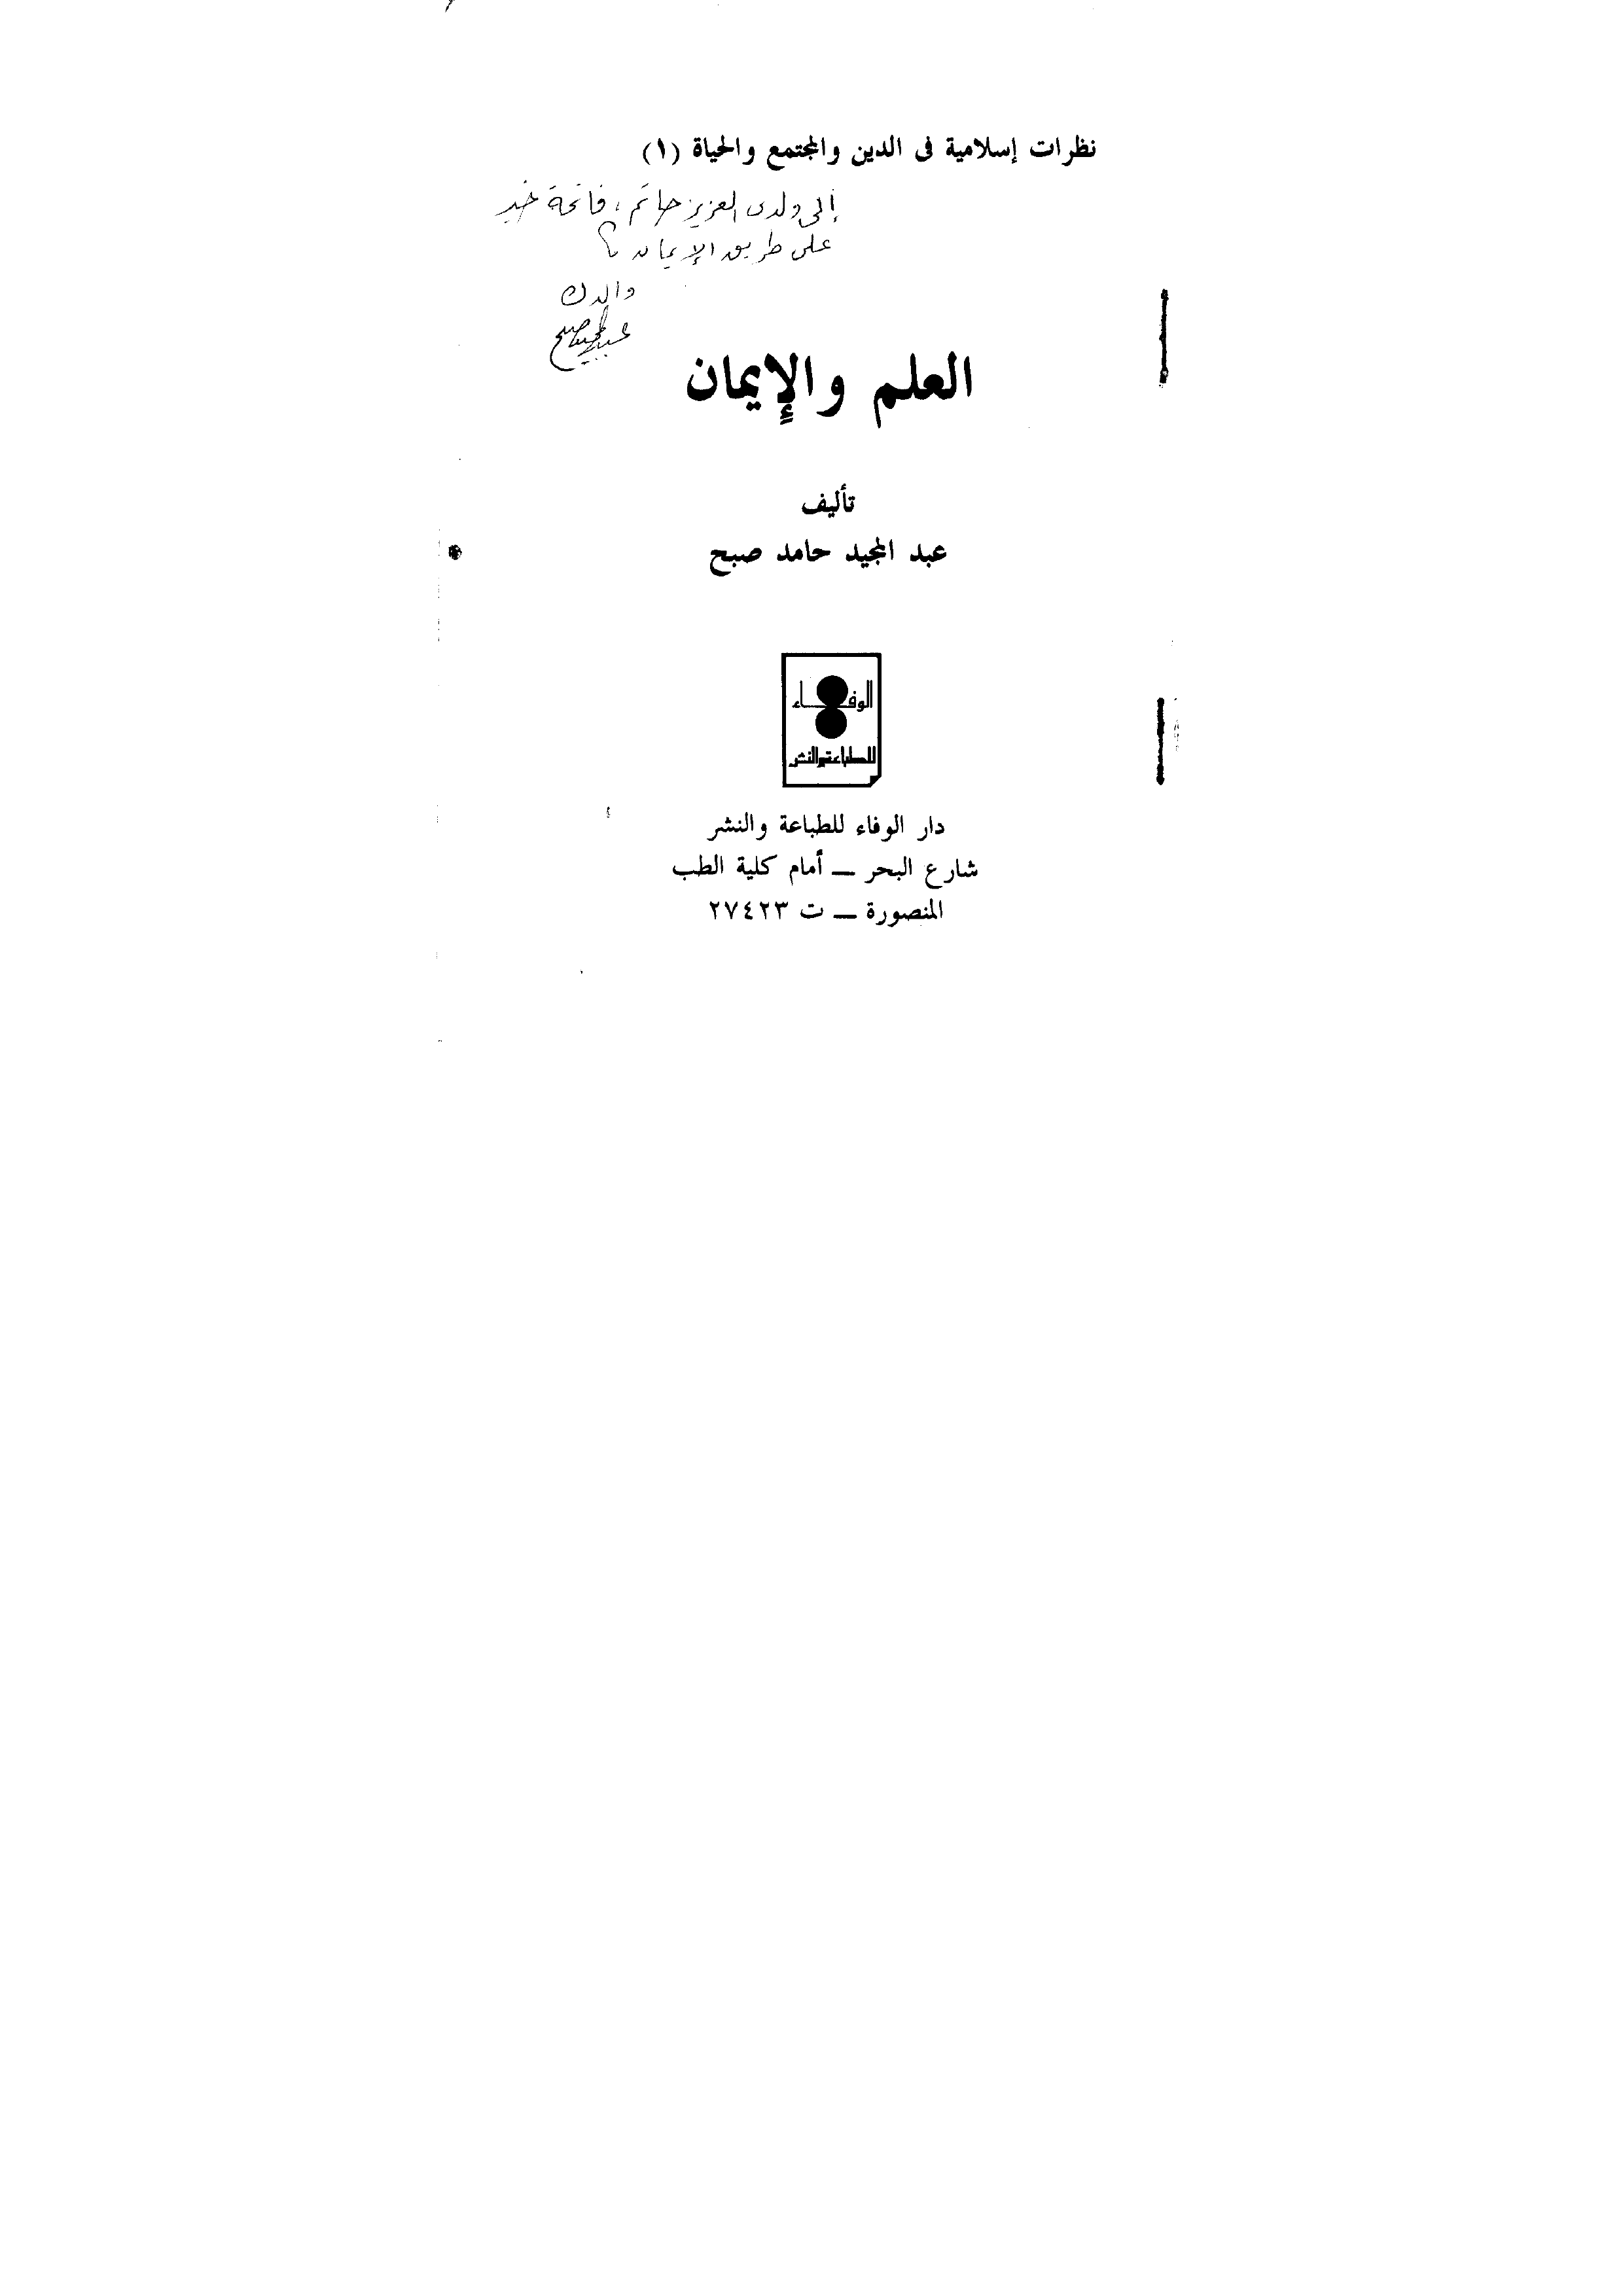 نظرات إسلامية فى الدين والمجتمع والحياة (١)
إلى ولدى العزيز حاتم ، فاتحة خير
على طريق الإيمان
والدك
عبد المجيد صبح
العلم والإيمان
تأليف
عبد المجيد حامد صبح
الوفاء
للطباعة والنشر
دار الوفاء للطباعة والنشر
شارع البحر ــ أمام كلية الطب
المنصورة ــ ت ٢٧٤٢٣